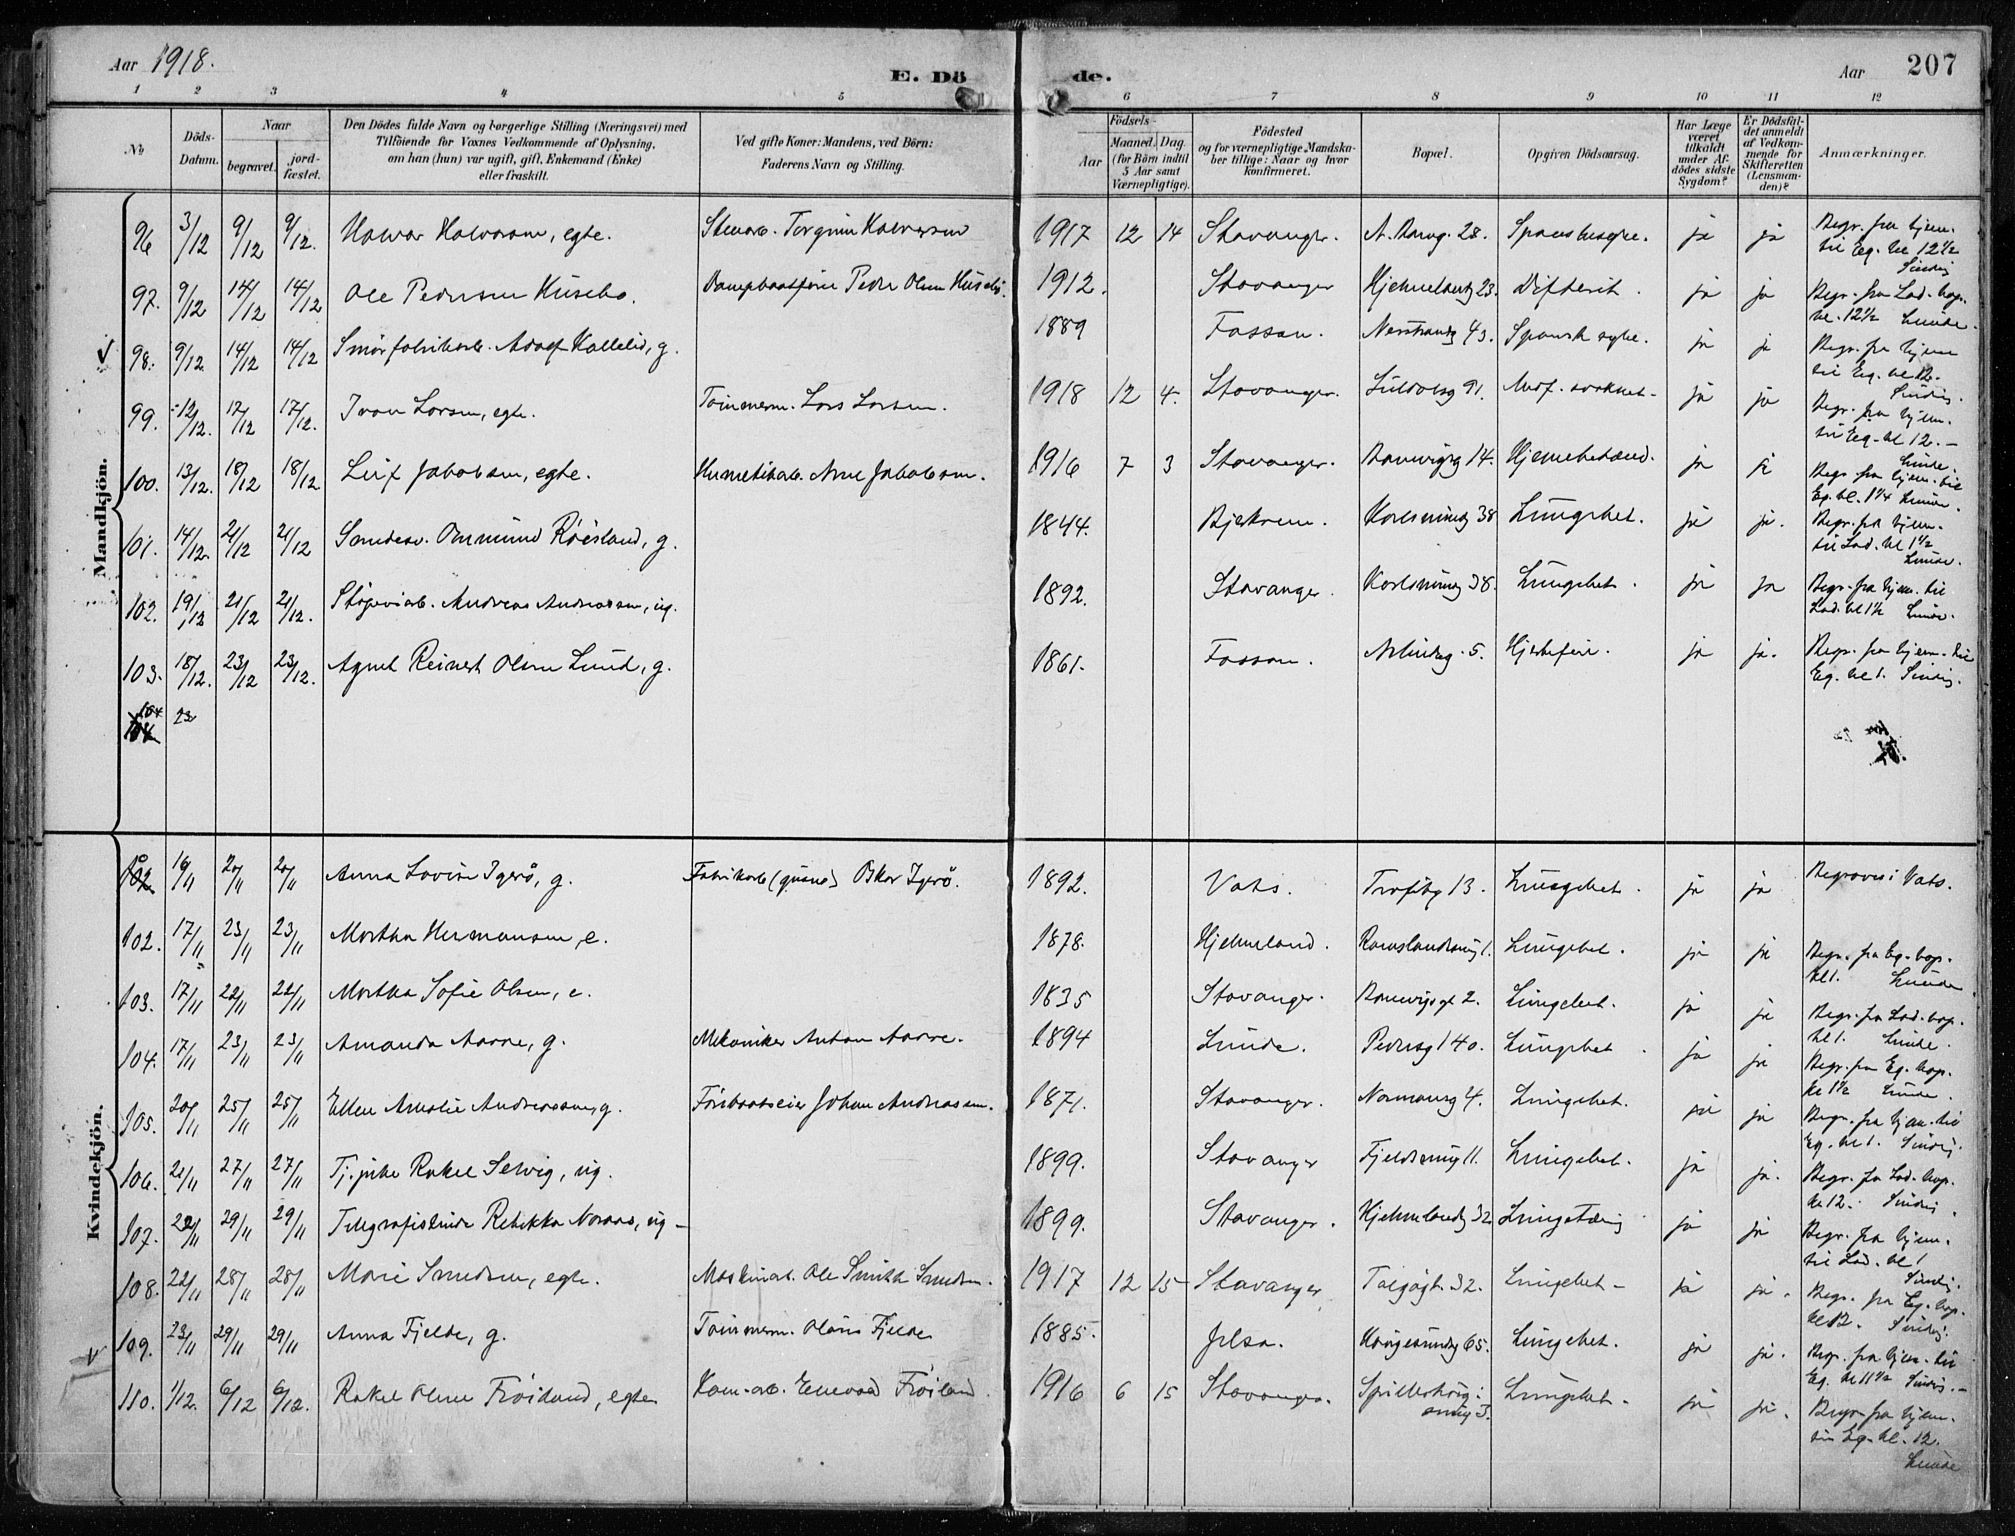 Aar 1918. E. Dö de. Aar 207
1 2 3 4 5 6 7 8 9 10 11 12
No Döds-Datum. Naar begravet. jord-fæstet. Den Dödes fulde Navn og borgerlige Stilling (Næringsvei) med Tilföiende for Voxnes Vedkommende af Oplysning, om han (hun) var ugift, gift, Enkemand (Enke) eller fraskilt. Ved gifte Koner: Mandens, ved Börn: Faderens Navn og Stilling. Födsels- Aar Maaned. Dag. (for Börn indtil 5 Aar samt Værnepligtige). Födested og for værnepligtige Mandskaber tillige: Naar og hvor konfirmeret. Bopæl. Opgiven Dödsaarsag. Har Læge været tilkaldt under Afdödes sidste Sygdom? Er Dödsfaldet anmeldt af Vedkommende for Skifteretten (Lensmanden)? Anmærkninger.
Mandkjön.
96 3/12 9/12 9/12. Halvor Halvorsen, egte. Stenarb. Torgrim Halvorsen 1917 12 14 Stavanger. 28. ja ja Begr. fra hjem. til Eg. kl 12½ Sindig
97. 9/12 14/12 14/12 Ole Pedersen Husebø. Peder Olsen Husebø. 1912. Stavanger Hjelmelandg 23. Difterit. ja ja Begr. fra Lad. kap. kl. 12½ Lunde.
98. 9/12 14/12 14/12 Smørfabrikarb. Adolf Kallelid, g. 1889 Fossan. Nerstrandg 43. Spansk syke. ja ja Begr. fra hjem til Eg. kl 12. Sindig.
99. 12/12. 17/12 17/12. Ivar Larsen, egte. Tømmerm. Lars Larsen. 1918 12 4. Stavanger. 91. Medf. svakhet. ja ja Begr. fra hjem. til Eg. kl 12. Lunde.
100. 13/12. 18/12 18/12. Leif Jakobsen, egte. Hermetikarb. Arne Jakobsen. 1916 7 3 Stavanger. Banevigsg 14. Hjernebetænd. ja ja Begr. fra hjem. til Eg. kl. 1¼ Lunde.
101. 14/12. 21/12 21/12 Ommund Røisland, g. 1844. Bjerkrem. Karlsmindeg 38 Lungebet. ja ja. Begr. fra hjem. til Lad. kl 1½ Lunde.
102. 19/12 21/12 21/12. Andreas Andreassen, ug. 1892. Stavanger. Karlsmindeg 38. Lungebet. ja ja Begr. fra hjem. til Lad. kl 1½ Lunde.
103. 18/12. 23/12 23/12. Agnet Reinert Olsen Lund, g. 1861. Fossan. 5. Hjertefeil. ja ja. Begr. fra hjem. til Eg. kl 1. Sindig.
104 23
Kvindekjön.
16/11 20/11 20/11 Anna Lovise Tgerø, g. Fabrikarb (guano) Oskar 1892. Vats. 13. Lungebet. ja ja Begraves i Vats.
102. 17/11 23/11 23/11 Martha Hermansen, e. 1878. Hjelmeland. 1. Lungebet. ja ja Begr. fra Eg. kap. kl 1. Lunde
103. 17/11 22/11 22/11 Martha Sofie Olsen, e. 1835 Stavanger. Banevigsgt 2. Lungebet. ja ja Begr. fra Lad. kap. kl 1. Lunde.
104. 17/11 23/11 23/11 Amanda Aarre, g. Mekaniker Anton Aarre. 1894 Lunde. Pedersg 140. Lungebet. ja ja Begr. fra Eg. kap. kl 1½ Lunde.
105. 20/11 25/11 25/11 Ellen Amalie Andreassen, g. Føribaatseier Johan Andreassen. 1871. Stavanger. Normansg 4. Lungebet. ja ja Begr. fra hjem. til Eg. kl 1. Sindig.
106. 21/11 27/11 27/11 Tj.pike Rakel Selvig, ug. 1899. Stavanger 11. Lungebet. ja ja. Begr. fra Lad. kap. kl 12. Sindig.
107. 22/11 29/11 29/11 Telegrafistinde Rebekka Noraas, ug. 1899. Stavanger. Hjelmelandg 32 Lungetæring ja ja Begr. fra hjem. til Lad. kl 1 Sindig.
108. 22/11 28/11 28/11 Marie Smedsen, egte. Maskinarb. Ole Smith Smedsen. 1917 12 15 Stavanger 32. Lungebet. ja ja. Begr. fra Eg. kap. kl 12. Sindig.
109. 23/11 29/11 29/11 Anna Fjelde, g. Tømmerm. Olaus Fjelde 1885. Jelsa. Haugesundsg 65. Lungebet. ja ja. Begr. fra hjem. til Eg. kl 11½ Sindig.
110. 1/12. 6/12 6/12. Rakel Oline Frøiland, egte Kom.arb. Enevald Frøiland. 1916 6 15 Stavanger. 3. Lungebet. ja ja. Begr. fra hjem. til Eg. kl. 12. Lunde